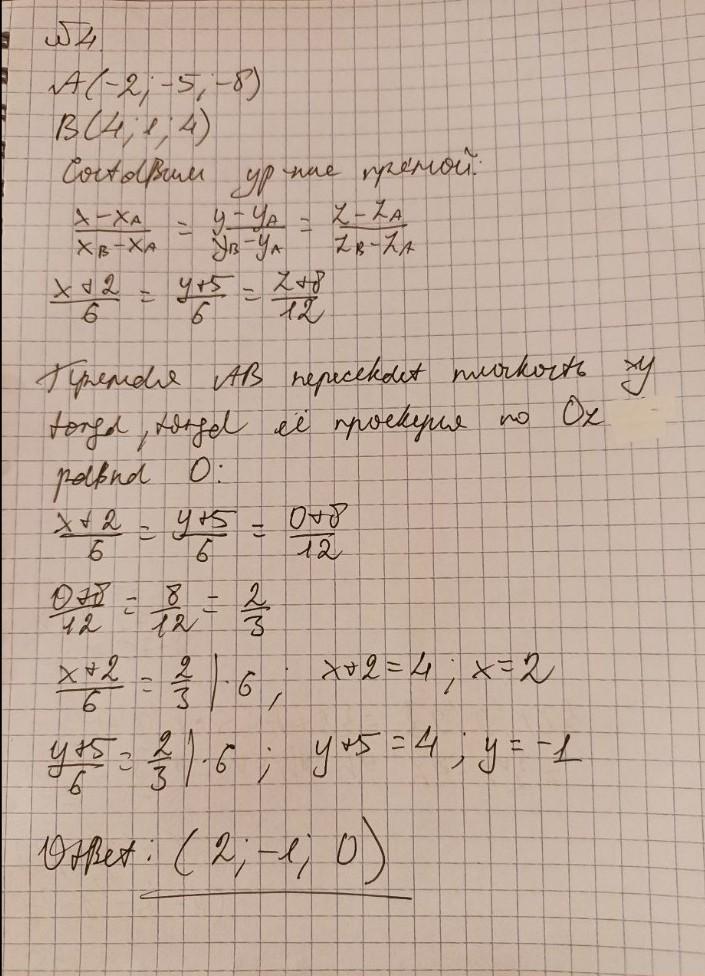 №4.
A(-2; -5; -8)
B(4; 1; 4)
Составим ур-ние прямой:
(x-x_A)/(x_B-x_A) = (y-y_A)/(y_B-y_A) = (z-z_A)/(z_B-z_A)
(x+2)/6 = (y+5)/6 = (z+8)/12
Прямая AB пересекает плоскость xy
тогда, тогда её проекция по Oz
равна 0:
(x+2)/6 = (y+5)/6 = (0+8)/12
(0+8)/12 = 8/12 = 2/3
(x+2)/6 = 2/3 |·6 ; x+2=4 ; x=2
(y+5)/6 = 2/3 |·6 ; y+5=4 ; y=-1
Ответ: (2; -1; 0)